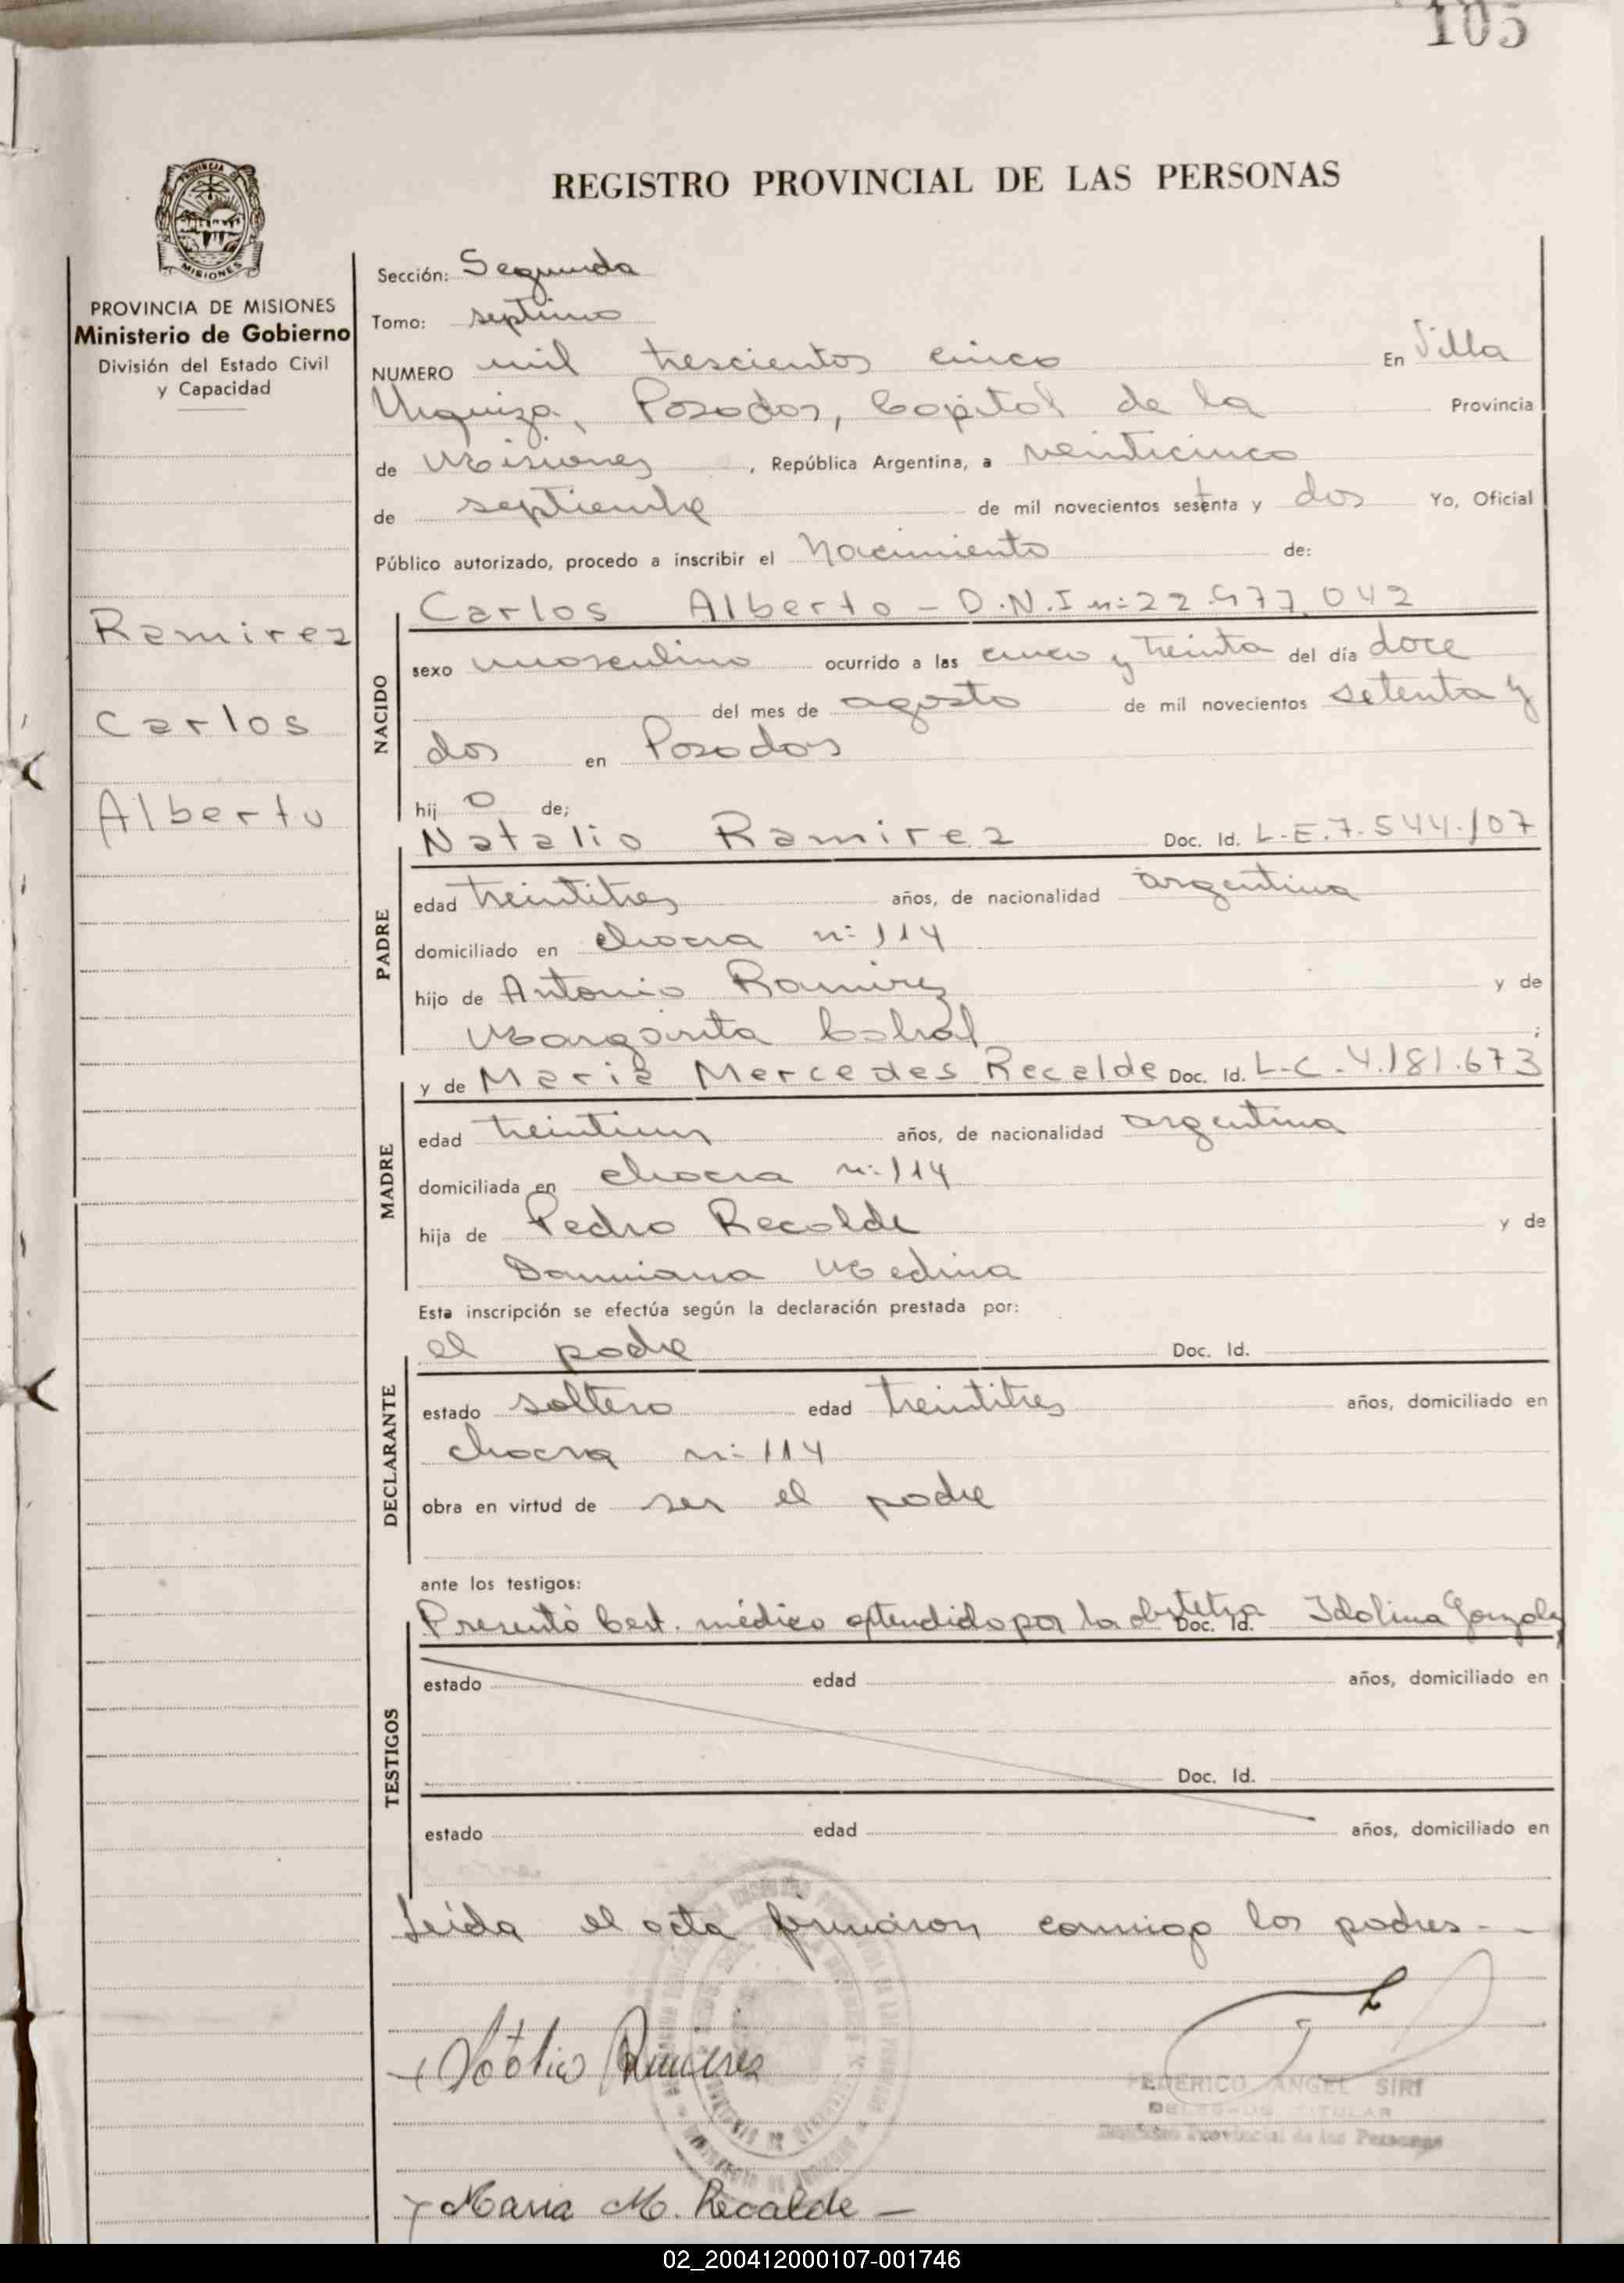 105
REGISTRO PROVINCIAL DE LAS PERSONAS
PROVINCIA DE MISIONES
Ministerio de Gobierno
División del Estado Civil
y Capacidad
Ramirez
Carlos
Alberto
Sección: Segunda
Tomo: septimo
NUMERO mil trescientos cinco En Villa
Urquiza, Posadas, Capital de la Provincia
de Misiones, República Argentina, a veinticinco
de septiembre de mil novecientos setenta y dos Yo, Oficial
Público autorizado, procedo a inscribir el Nacimiento de:
NACIDO
Carlos Alberto - D.N.I n: 22.977.042
sexo masculino ocurrido a las cinco y treinta del día doce
del mes de agosto de mil novecientos setenta y
dos en Posadas
hij o de;
PADRE
Natalio Ramirez Doc. Id. L.E.7.544.107
edad treintitres años, de nacionalidad argentina
domiciliado en chacra n: 114
hijo de Antonio Ramirez y de
Margarita Cabral;
MADRE
y de Maria Mercedes Recalde Doc. Id. L-C-4.181.673
edad treintiun años, de nacionalidad argentina
domiciliada en chacra n: 114
hija de Pedro Recalde y de
Damiana Medina
Esta inscripción se efectúa según la declaración prestada por:
DECLARANTE
el padre Doc. Id.
estado soltero edad treintitres años, domiciliado en
chacra n: 114
obra en virtud de ser el padre
ante los testigos:
TESTIGOS
Presentó Cert. médico extendido por la obstetra Doc. Id. Idolina Gonzalez
estado edad años, domiciliado en
Doc. Id.
estado edad años, domiciliado en
Leída el acta firmaron conmigo los padres - -
Natalio Ramirez
FEDERICO ANGEL SIRI
DELEGADO TITULAR
Registro Provincial de las Personas
Maria M. Recalde -
02_200412000107-001746